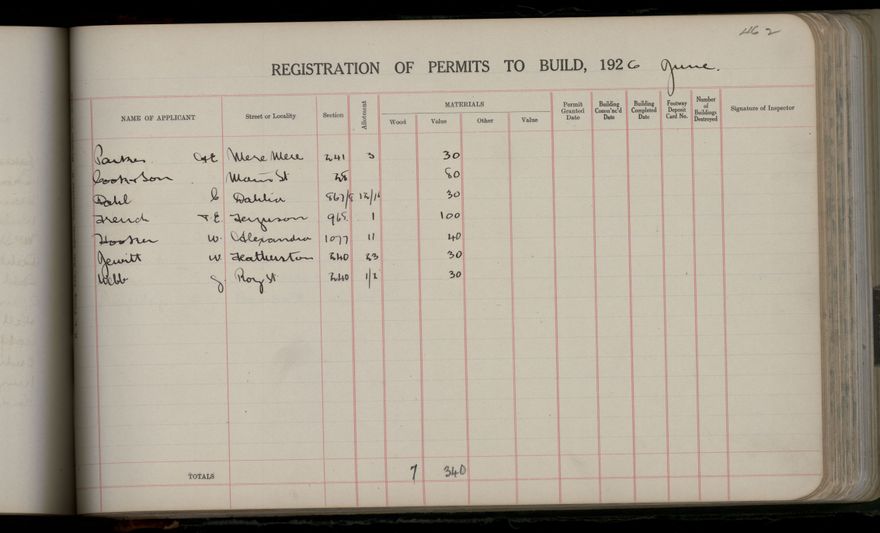 462
REGISTRATION OF PERMITS TO BUILD, 1926 June.
NAME OF APPLICANT Street or Locality Section Allotment MATERIALS Wood Value Other Value Permit Granted Date Building Comm'nc'd Date Building Completed Date Footway Deposit Card No. Number of Buildings Destroyed Signature of Inspector
Parkes Mere Mere 241 3 30
Cook & Son Main St 28 80
Dahl C Dahlia 867/8 30
Frend T.E. Ferguson 965 1 100
Hooker W. Alexandra 1077 11 40
Jewitt W. Featherston 240 23 30
Webb J. Roy St 240 1/2 30
TOTALS 7 340